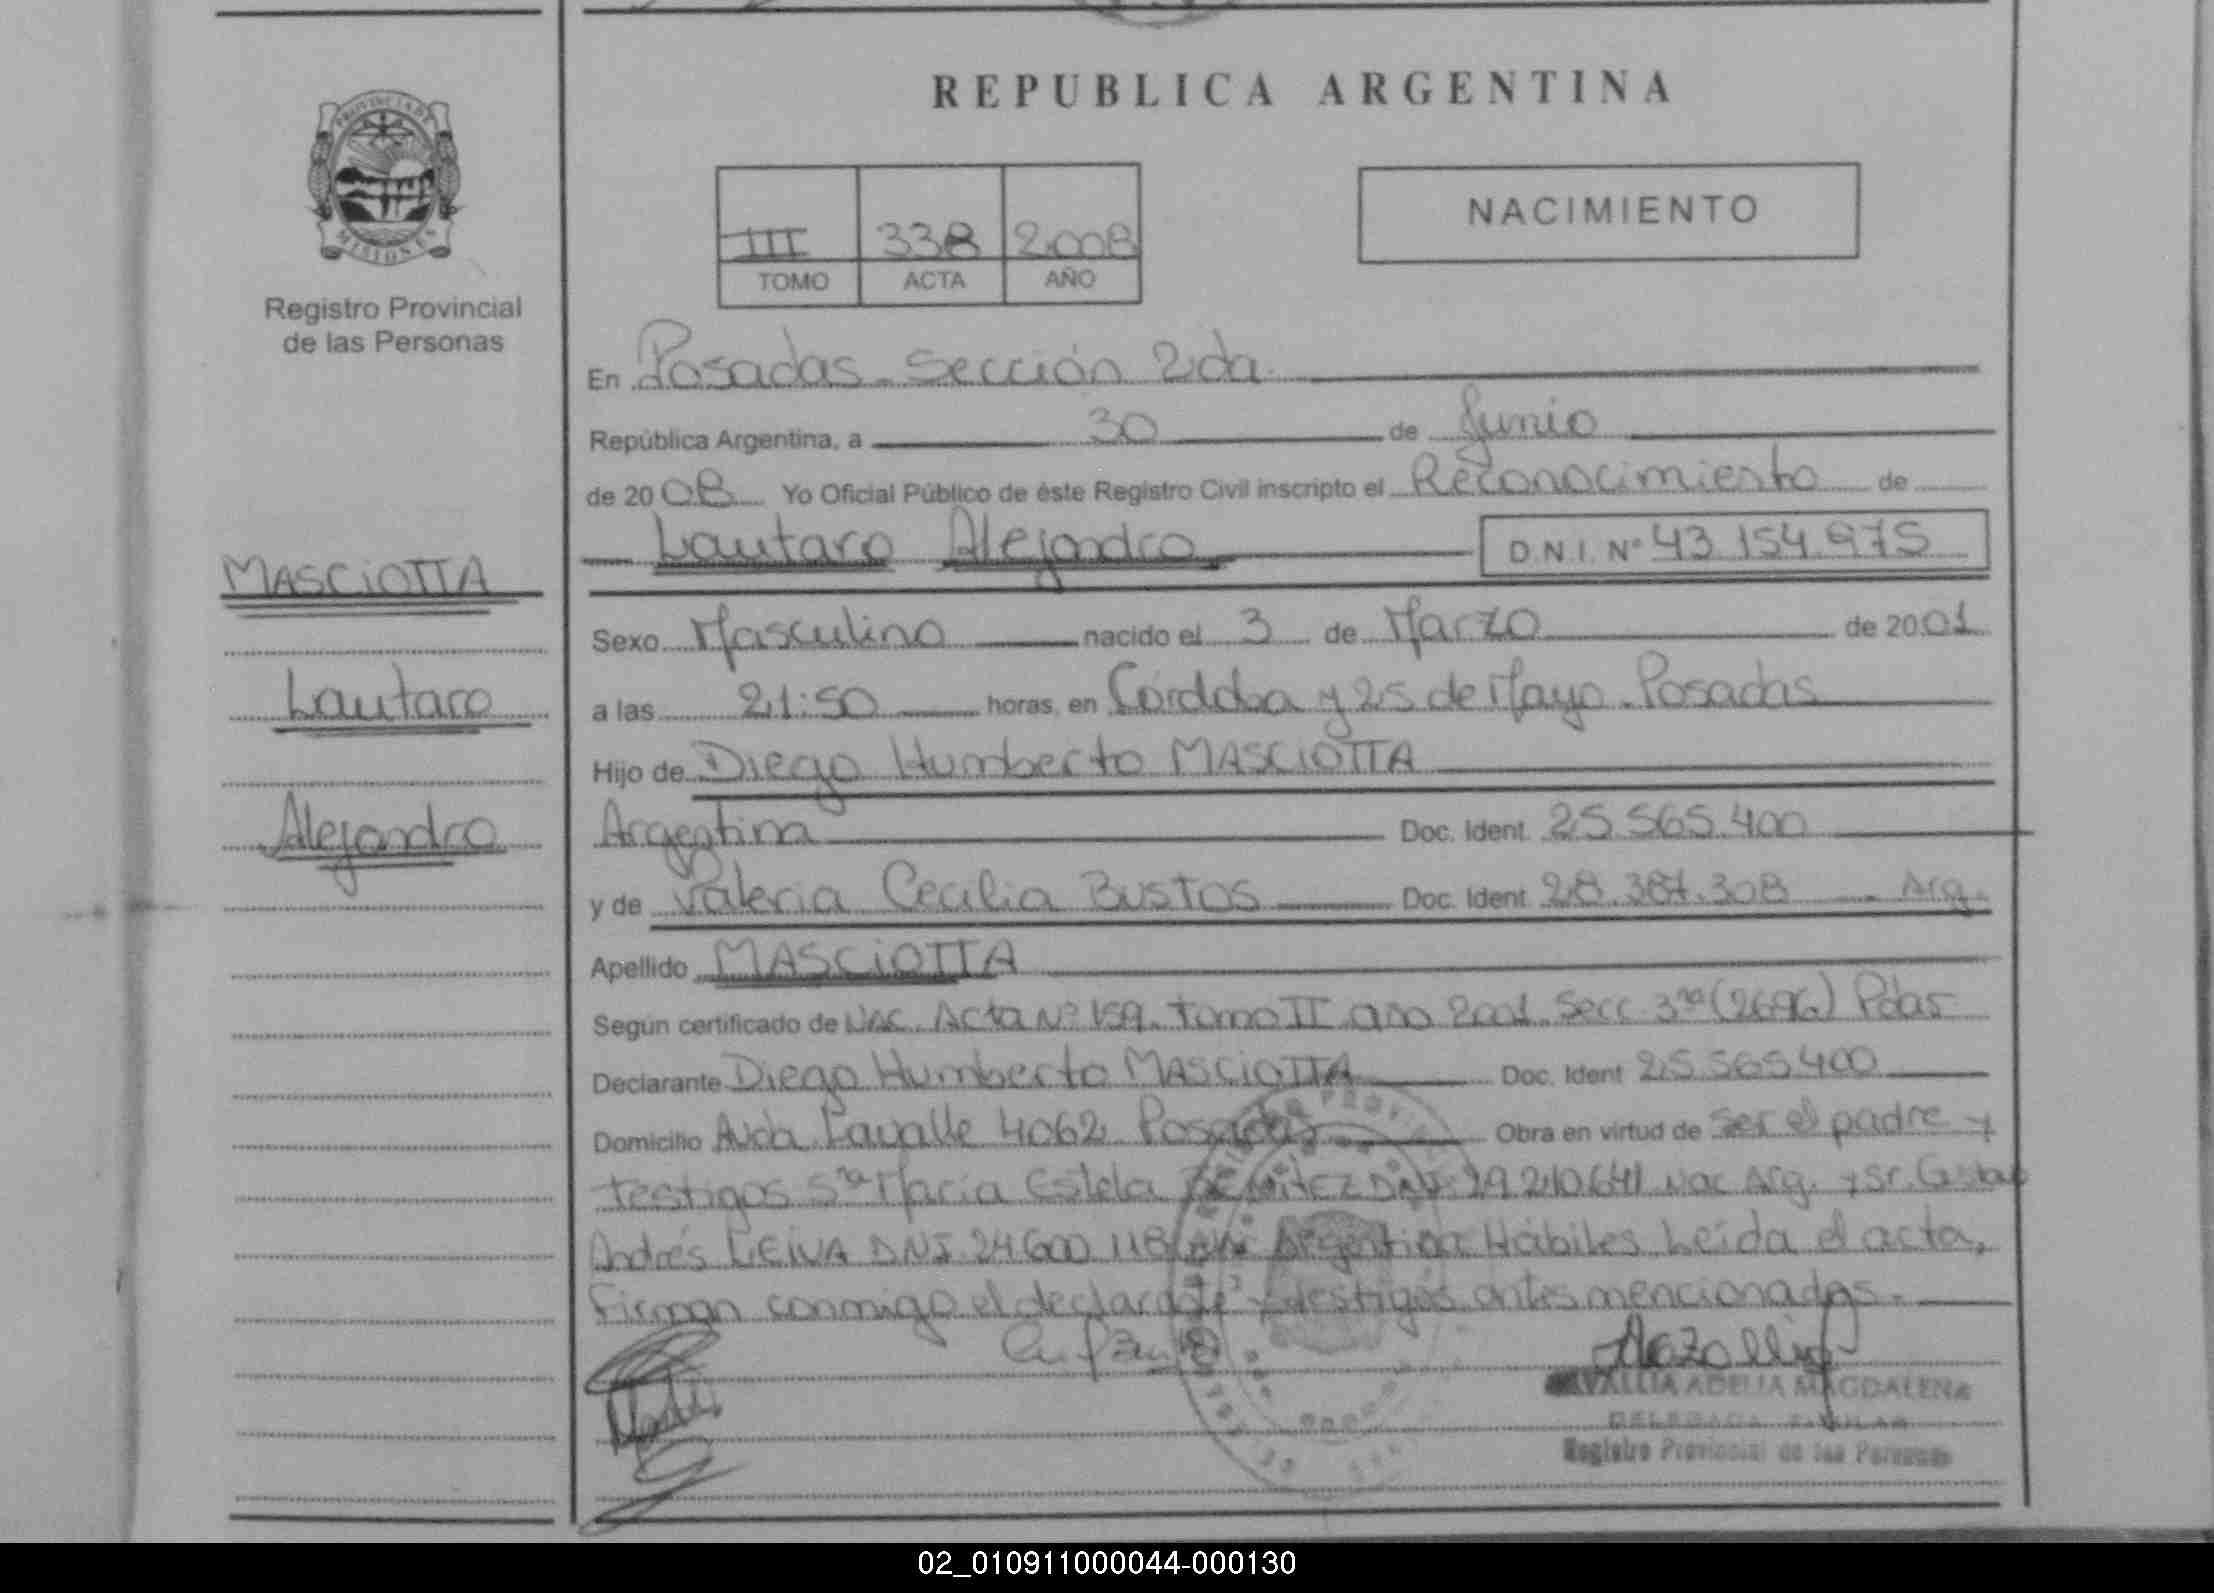 REPUBLICA ARGENTINA
PROVINCIA DE
MISIONES
Registro Provincial
de las Personas
III 338 2008
TOMO ACTA AÑO
NACIMIENTO
En Posadas - Sección 2da.
República Argentina, a 30 de Junio
de 2008 Yo Oficial Público de éste Registro Civil inscripto el Reconocimiento de
Lautaro Alejandro D.N.I. Nº 43 154.975
MASCIOTTA
Lautaro
Alejandro
Sexo Masculino nacido el 3 de Marzo de 2001
a las 21:50 horas, en Córdoba y 25 de Mayo - Posadas
Hijo de Diego Humberto MASCIOTTA
Argentina Doc. Ident. 25.565.400
y de Valeria Cecilia BUSTOS Doc. Ident. 28.387.308 Arg.
Apellido MASCIOTTA
Según certificado de Nac. Acta Nº 159. Tomo II año 2001. Secc. 3ra (2696) Pdas
Declarante Diego Humberto MASCIOTTA Doc. Ident 25.565.400
Domicilio Avda Lavalle 4062 Posadas Obra en virtud de ser el padre y
testigos Sra María Estela BENITEZ DNI 29.210.641 Nac Arg. y Sr.
Andrés LEIVA DNI 24.600.118 Argentina Hábiles Leída el acta,
Firman conmigo el declarante y testigos antes mencionados.
ADELIA MAGDALENA
DELEGADA TITULAR
Registro Provincial de las Personas
02_010911000044-000130